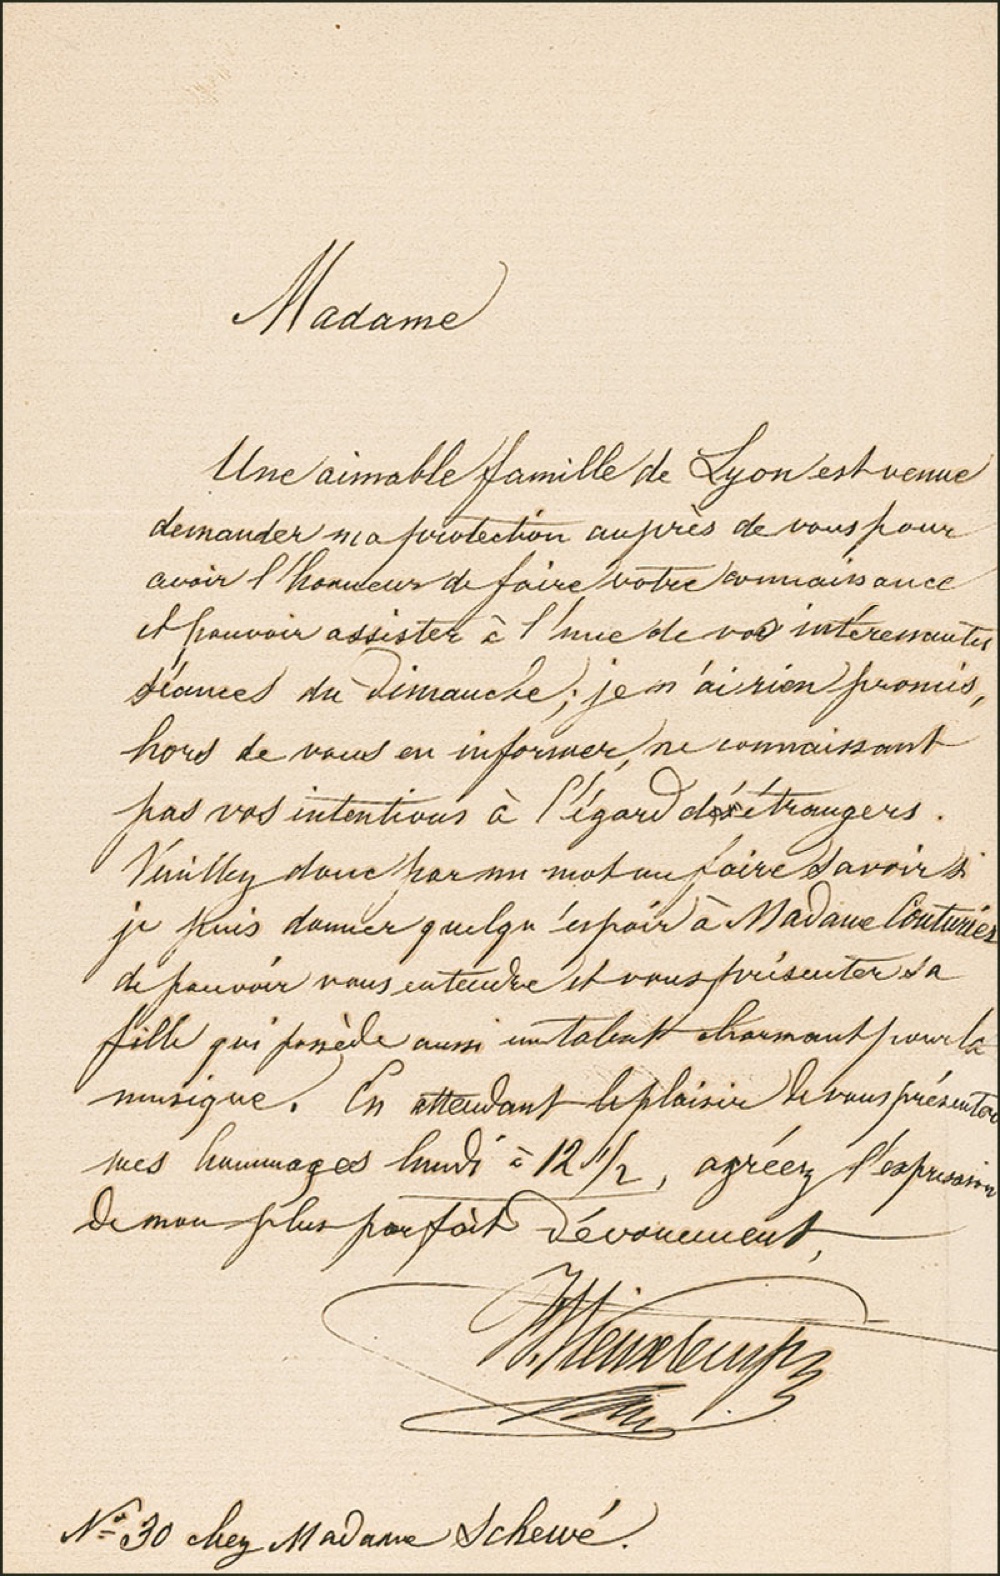 Madame
Une aimable famille de Lyon est venue
demander ma protection auprès de vous pour
avoir l'honneur de faire votre connaissance
et pouvoir assister à l'une de vos intéressantes
séances du Dimanche; je n'ai rien promis,
hors de vous en informer, ne connaissant
pas vos intentions à l'égard des étrangers.
Veuillez donc par un mot me faire savoir si
je puis donner quelqu'espoir à Madame Couturier
de pouvoir vous entendre et vous présenter sa
fille qui possède aussi un talent charmant pour la
musique. En attendant le plaisir de vous présenter
mes hommages lundi à 12 1/2, agréez l'expression
de mon plus parfait dévouement,
H. Vieuxtemps
No 30 chez Madame Schewé.